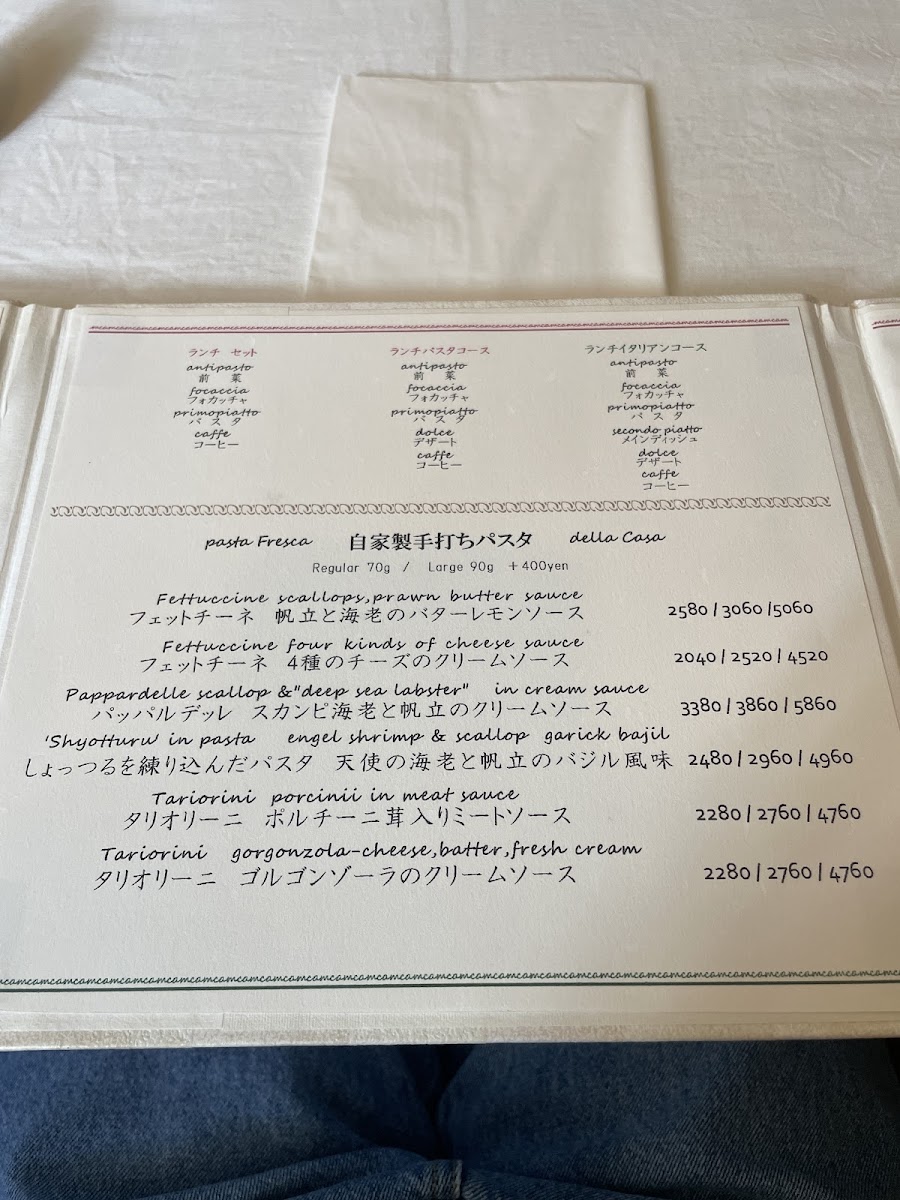 ランチ セット
antipasto
前 菜
focaccia
フォカッチャ
primopiatto
パ ス タ
caffe
コーヒー
ランチパスタコース
antipasto
前 菜
focaccia
フォカッチャ
primopiatto
パ ス タ
dolce
デザート
caffe
コーヒー
ランチイタリアンコース
antipasto
前 菜
focaccia
フォカッチャ
primopiatto
パ ス タ
secondo piatto
メインディッシュ
dolce
デザート
caffe
コーヒー
pasta Fresca 自家製手打ちパスタ della Casa
Regular 70g / Large 90g +400yen
Fettuccine scallops,prawn butter sauce
フェットチーネ 帆立と海老のバターレモンソース 2580 / 3060 /5060
Fettuccine four kinds of cheese sauce
フェットチーネ 4種のチーズのクリームソース 2040 / 2520 / 4520
Pappardelle scallop &"deep sea labster" in cream sauce
パッパルデッレ スカンピ海老と帆立のクリームソース 3380 / 3860 / 5860
'Shyotturu' in pasta engel shrimp & scallop garick bajil
しょっつるを練り込んだパスタ 天使の海老と帆立のバジル風味 2480 / 2960 / 4960
Tariorini porcinii in meat sauce
タリオリーニ ポルチーニ茸入りミートソース 2280 / 2760 / 4760
Tariorini gorgonzola-cheese,batter,fresh cream
タリオリーニ ゴルゴンゾーラのクリームソース 2280 / 2760 / 4760